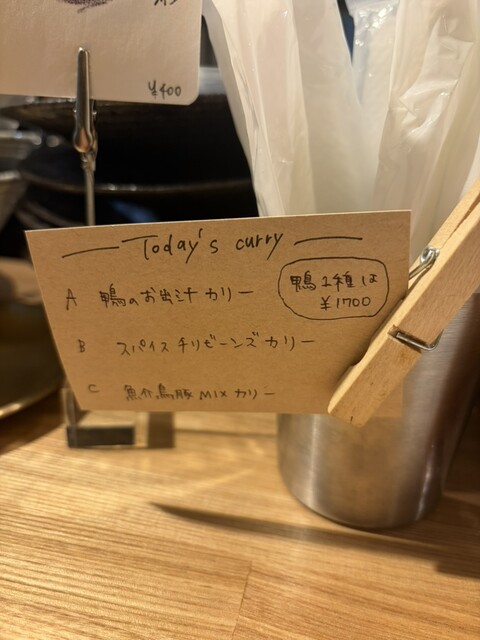 ¥400
Today's curry
A 鴨のお出汁カリー
鴨1種は
¥1700
B スパイスチリビーンズカリー
C 魚介鳥豚MIXカリー